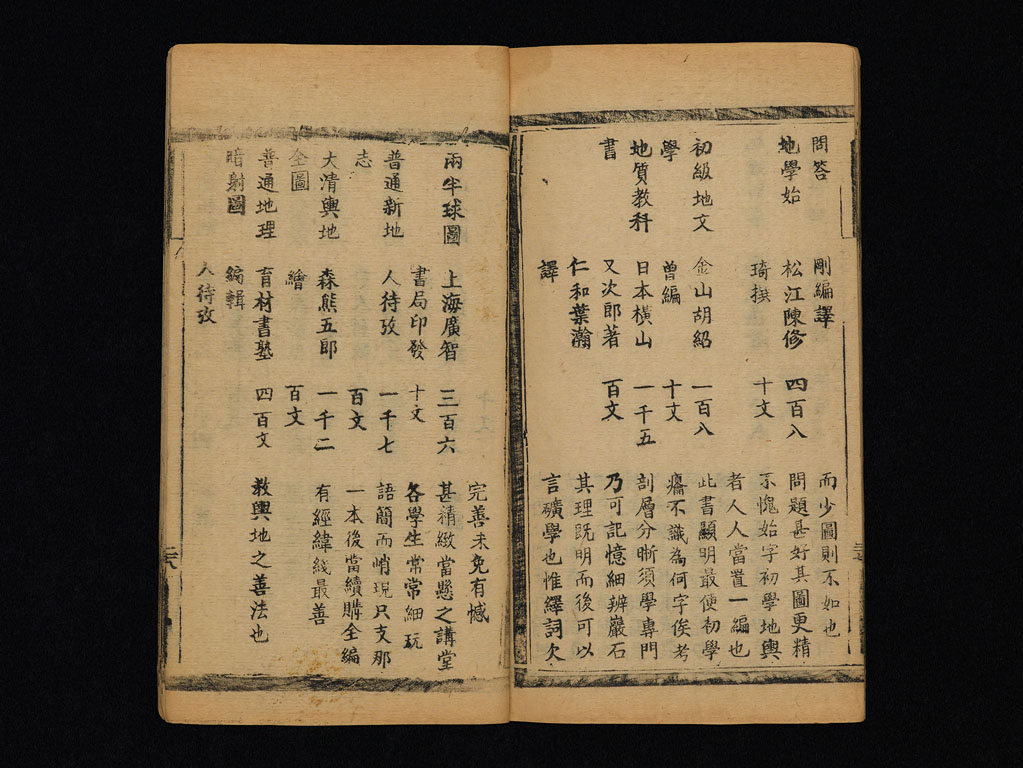 問答 剛編譯 而少圖則不如也
地學始 松江陳修 四百八 問題甚好其圖更精
琦撰 十文 不愧始字初學地輿
者人人當置一編也
初級地文 金山胡紹 一百八 此書顯明最便初學
學 曾編 十文 不識為何字俟考
地質教科 日本橫山 一千五 剖層分晰須學專門
書 又次郎著 百文 乃可記憶細辨巖石
仁和葉瀚 其理既明而後可以
譯 言礦學也惟繹詞欠
完善未免有憾
兩半球圖 上海廣智 三百六 甚精緻當懸之講堂
書局印發 十文 各學生常常細玩
普通新地 人待攷 一千七 語簡而悄現只支那
志 百文 一本後當續購全編
大清輿地 森熊五郎 一千二 有經緯綫最善
全圖 繪 百文
普通地理 育材書塾 四百文 教輿地之善法也
暗射圖 編輯
人待攷
二十八